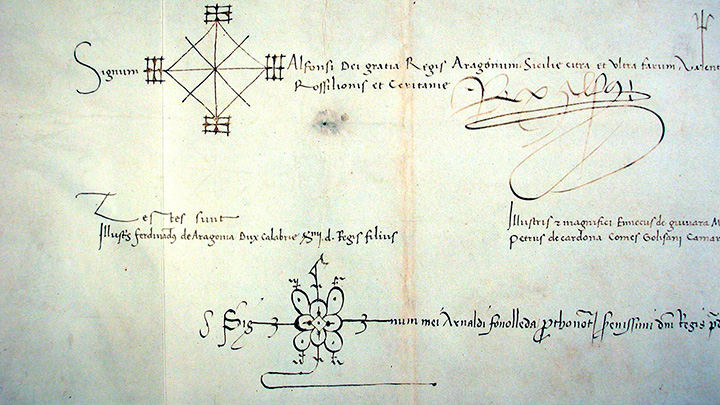 Signum Alfonsi Dei gratia Regis Aragonum Sicilie citra et ultra farum Valent
Rossilionis et Ceritanie
Rex Alfonsus
Testes sunt
Illustris ferdinandus de Aragonia Dux Calabrie d. Regis filius
Illustris z magnifici Ennecus de guivara M
petrus de cardona Comes Golisani Camar
Sig num mei Arnaldi fonolleda serenissimi dni Regis